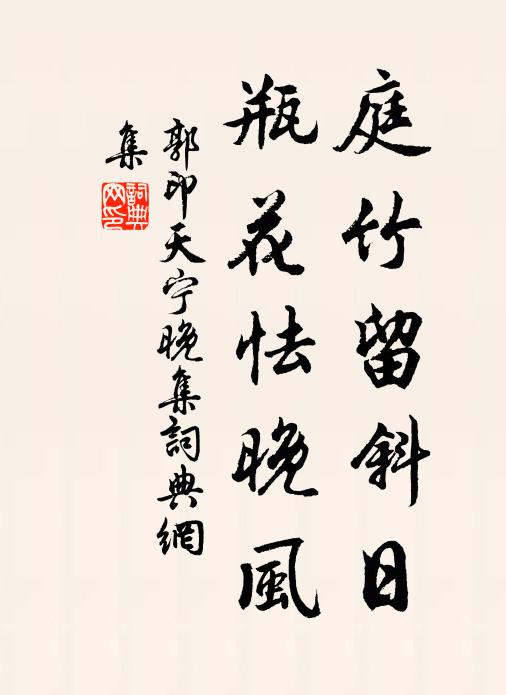 庭竹留斜日
瓶花怯晚風
郭印天宁晚集詞典網
集
詞典网印